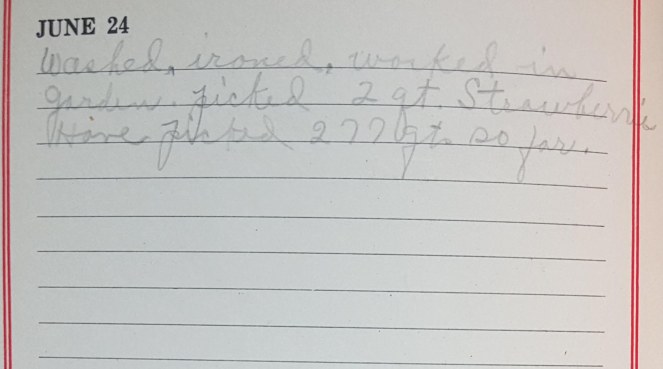 JUNE 24
Washed, ironed, worked in
garden. picked 2 qt. Strawberrie
Have picked 277 qt. so far.